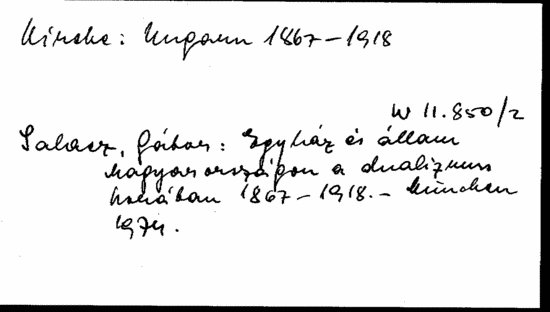 Kirche: Ungarn 1867–1918
W 11.850/2
Salacz, Gábor: Egyház és állam
Magyarországon a dualizmus
korában 1867–1918.– München
1974.